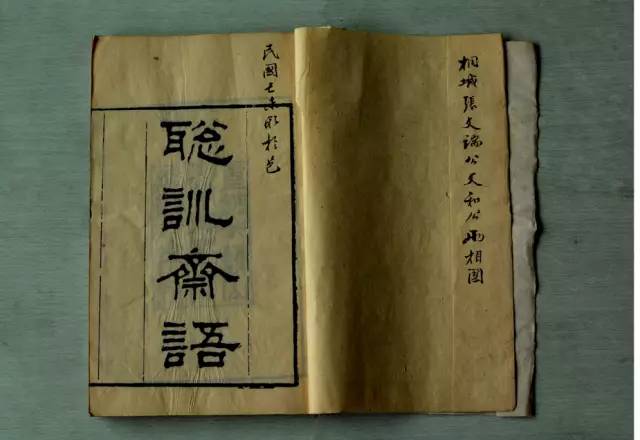 桐城張文端公文和公兩相國
民國未於邑
聡訓齋語